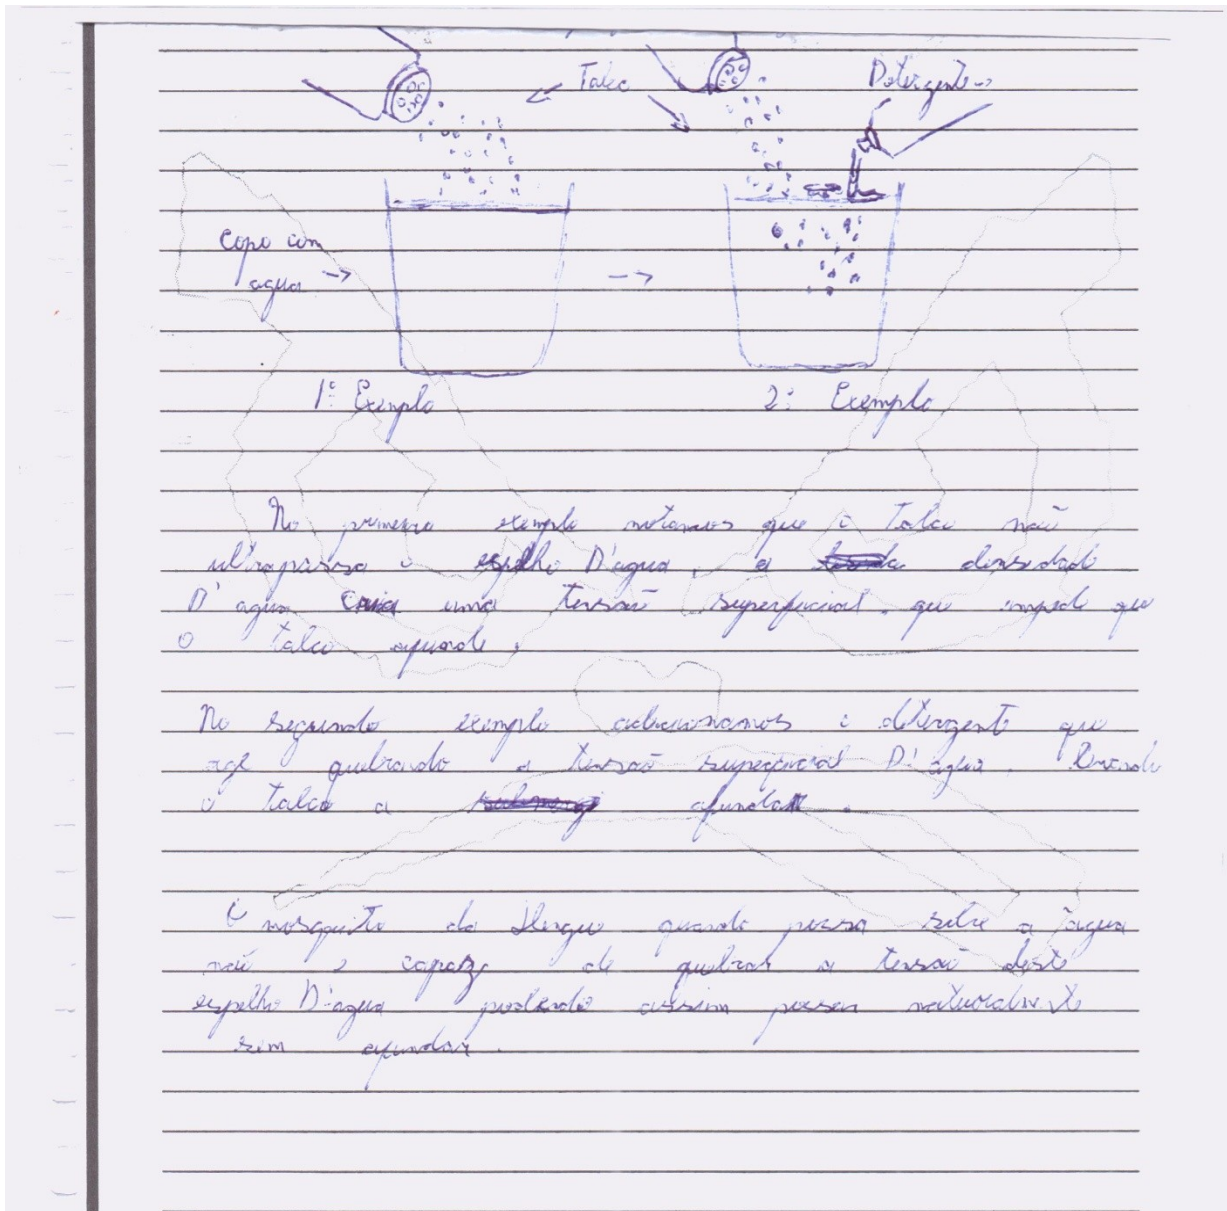 Talco
Detergente
Copo com
água
1º Exemplo
2º Exemplo
No primeiro exemplo notamos que o Talco não
ultrapassa o espelho D'agua, a densidade
D'agua cria uma tensão superficial que impede que
o talco afunde,
No segundo exemplo adicionamos o detergente que
age quebrando a tensão superficial D'agua. levando
o talco a afundar.
O mosquito da Dengue quando possa sobre a água
não é capaz de quebrar a tensão deste
espelho D'agua podendo assim possar naturalmente
sem afundar.